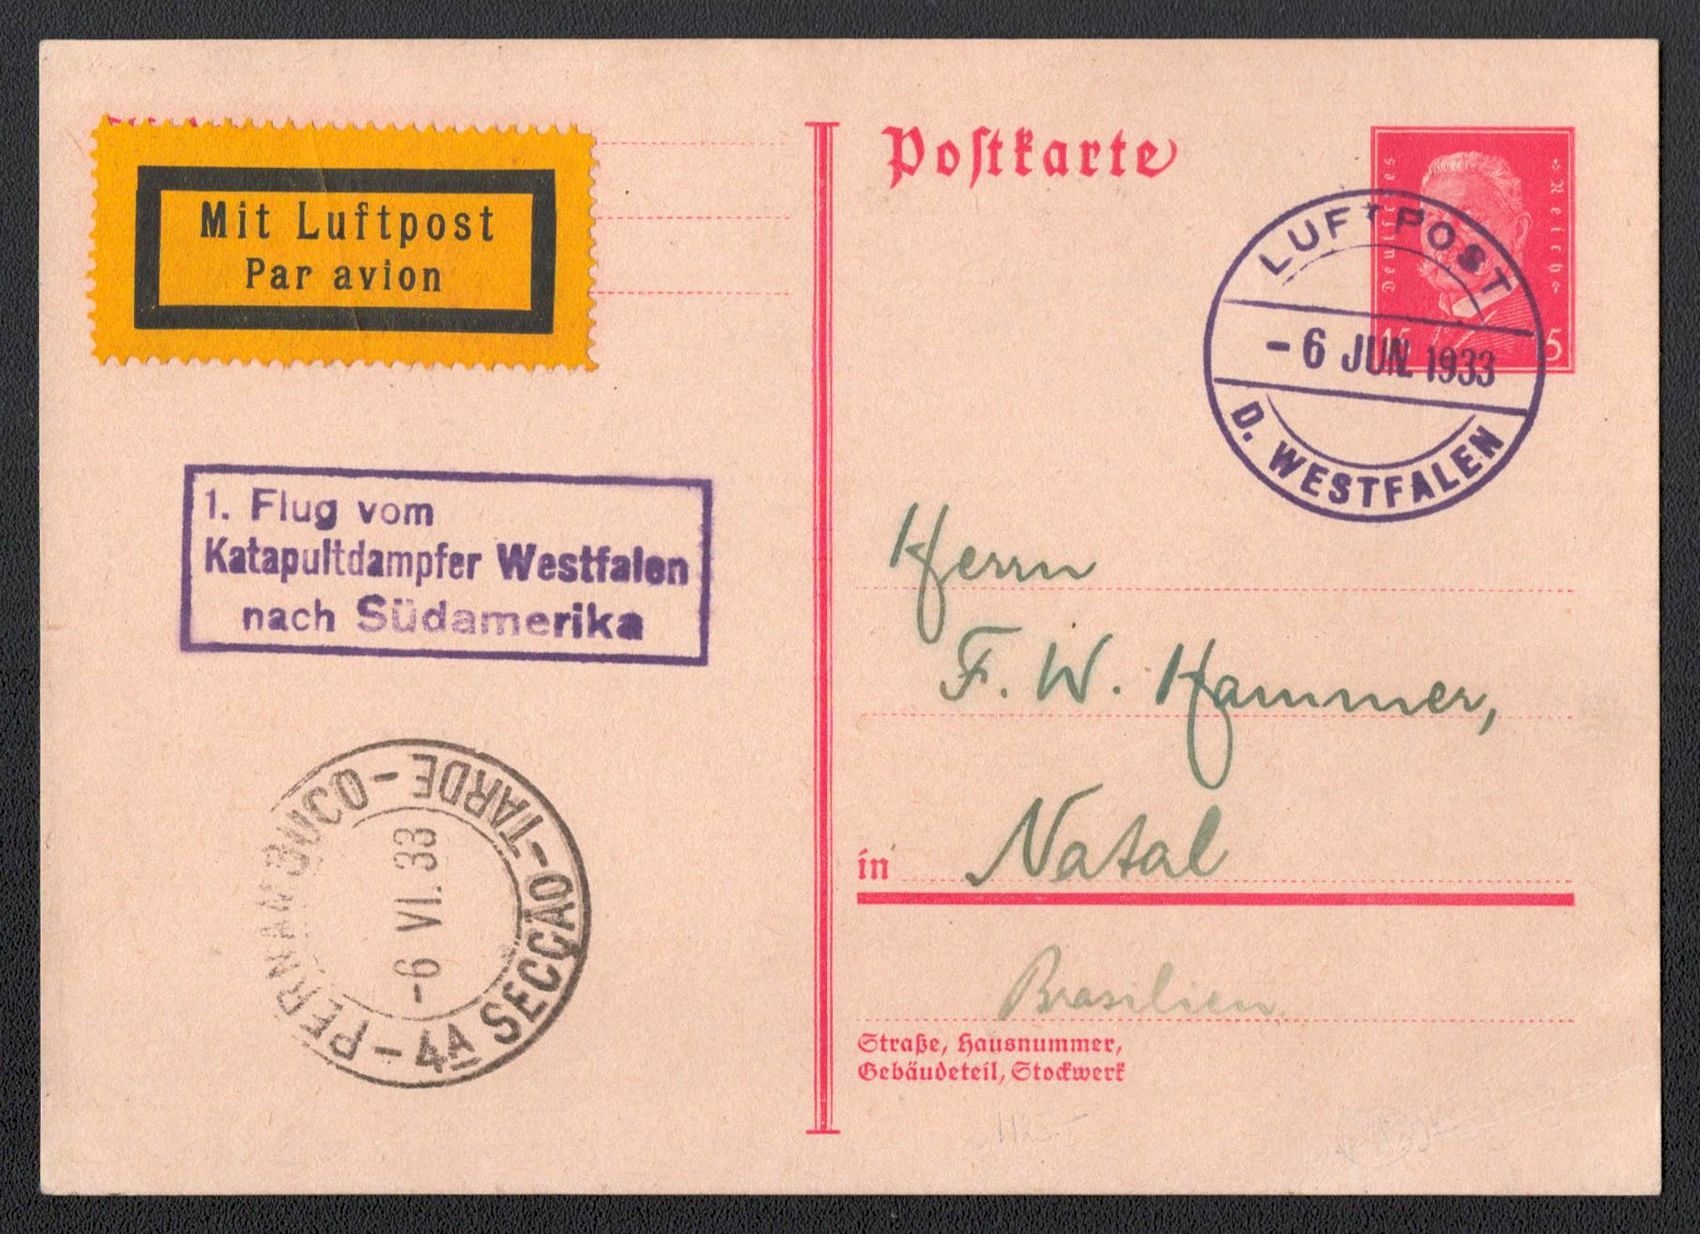 Mit Luftpost
Par avion
Postkarte
Deutsches Reich
15 15
LUFTPOST
- 6 JUN. 1933
D. WESTFALEN
1. Flug vom
Katapultdampfer Westfalen
nach Südamerika
PERNAMBUCO - TARDE -
- 6 VI. 33
4A SECÇÃO -
Herrn
F. W. Hammer,
in Natal
Brasilien
Straße, Hausnummer,
Gebäudeteil, Stockwerk